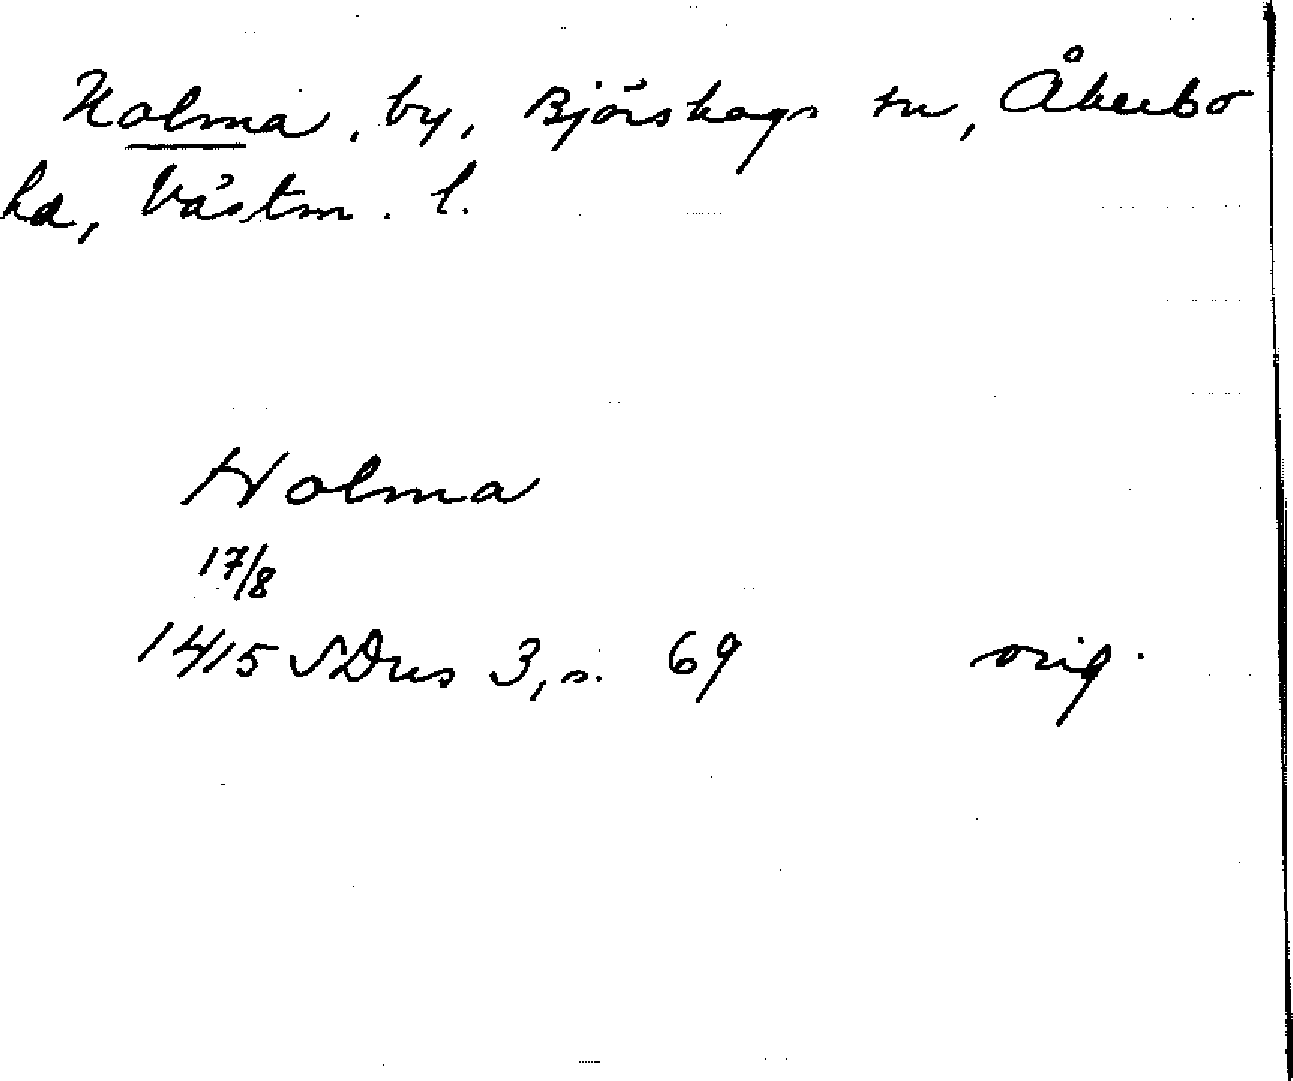 Holma, by, Björskogs sn, Åkerbo
hd, Västm. l.
Holma
17/8
1415 SDns 3, s. 69 orig.